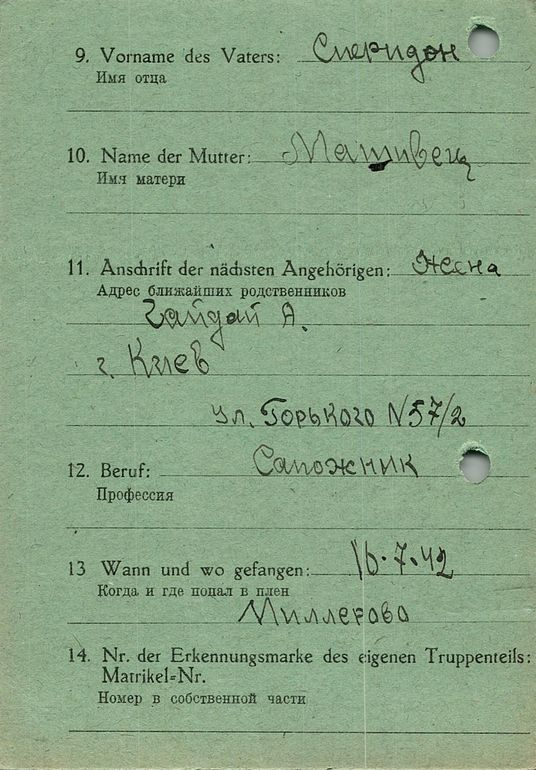 9. Vorname des Vaters: Спиридон
Имя отца
10. Name der Mutter: Матвивец
Имя матери
11. Anschrift der nächsten Angehörigen: Жена
Адрес ближайших родственников
Гайдай А.
г. Киев
ул. Горького N 57/2
12. Beruf: Сапожник
Профессия
13 Wann und wo gefangen: 16.7.42
Когда и где попал в плен
Миллерово
14. Nr. der Erkennungsmarke des eigenen Truppenteils:
Matrikel=Nr.
Номер в собственной части